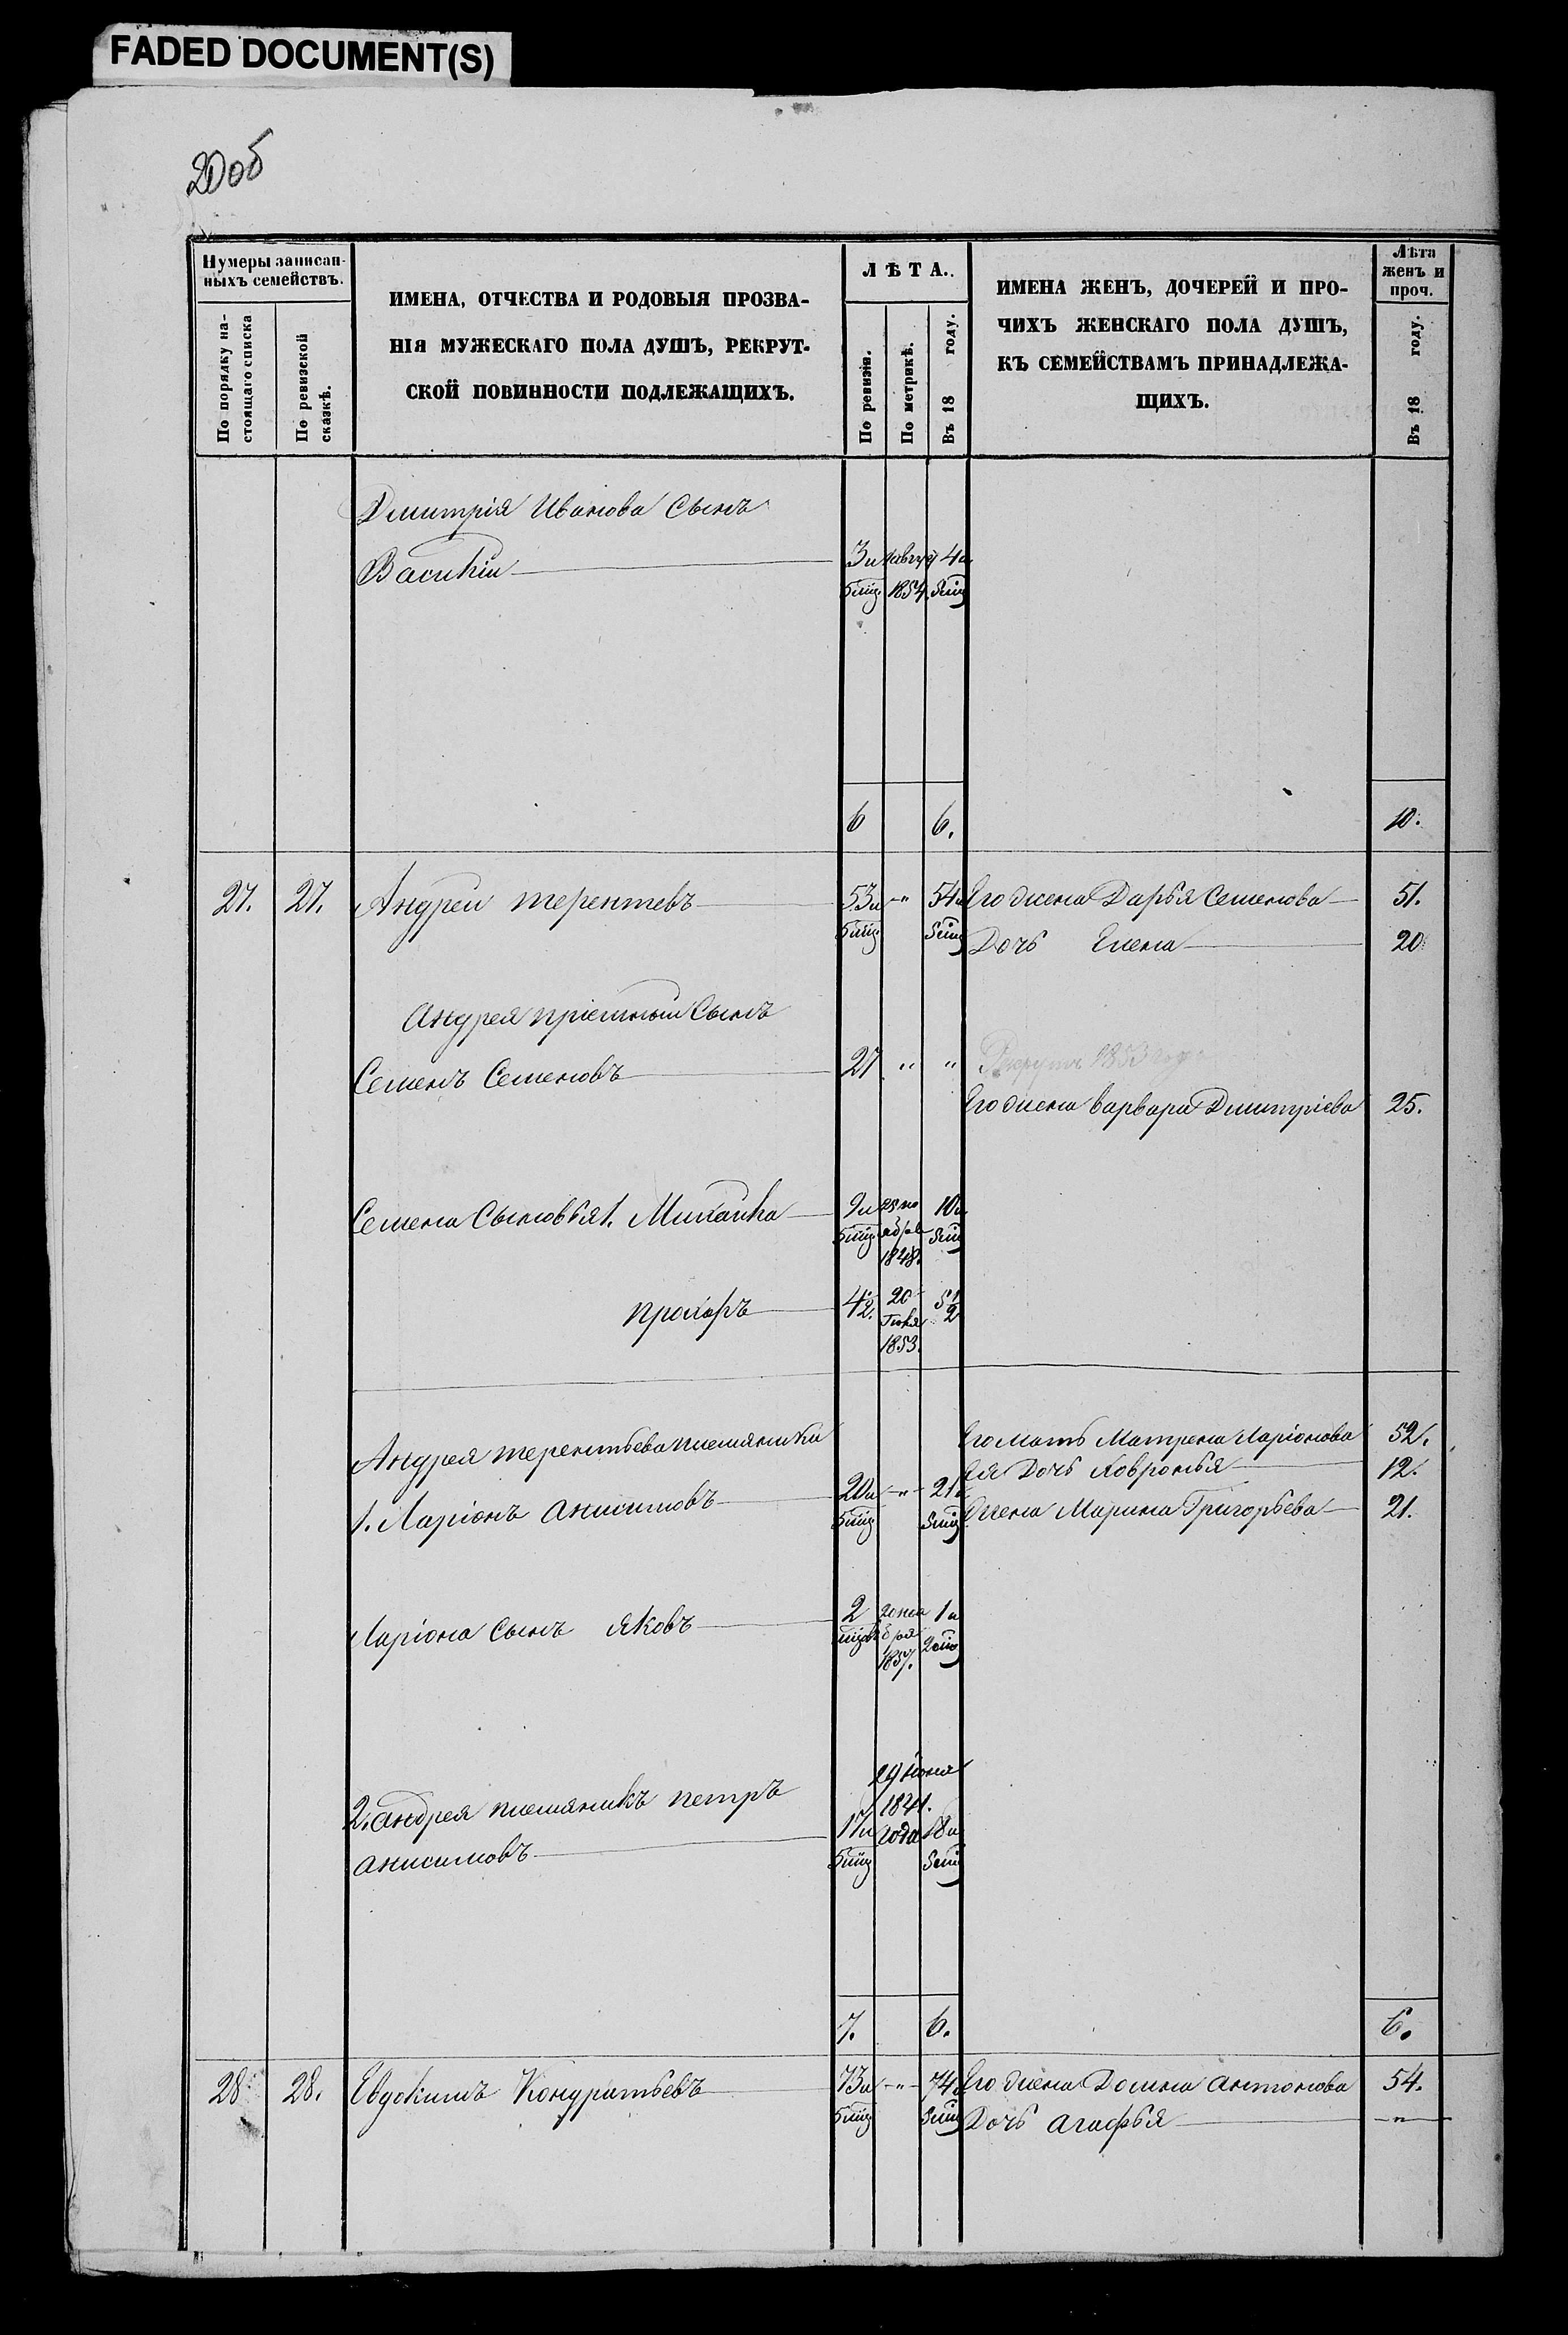 FADED DOCUMENT(S)
20об
Нумеры записан-
ныхъ семействъ.
По порядку на-
стоящаго списка
По ревизской
сказкѣ.
ИМЕНА, ОТЧЕСТВА И РОДОВЫЯ ПРОЗВА-
НІЯ МУЖЕСКАГО ПОЛА ДУШЪ, РЕКРУТ-
СКОЙ ПОВИННОСТИ ПОДЛЕЖАЩИХЪ.
ЛѢТА.
По ревизіи.
По метрикѣ.
Въ 18 году.
ИМЕНА ЖЕНЪ, ДОЧЕРЕЙ И ПРО-
ЧИХЪ ЖЕНСКАГО ПОЛА ДУШЪ,
КЪ СЕМЕЙСТВАМЪ ПРИНАДЛЕЖА-
ЩИХЪ.
Лѣта
женъ и
проч.
Въ 18 году.
Дмитрія Иванова Сынъ
Василіи 3и 4и
5міц. 1854. 5міц
6 6. 10.
27. 27. Андреи терентевъ 53и -"- 54и Его жена Дарья Семенова 51.
5міц 5міц Дочь Елена 20
Андрея пріемныи Сынъ
Семенъ Семеновъ 27 " " Рекрутъ 1853 года
Его жена варвара Дмитріева 25.
Семена Сыновья 1. Михаила 9и 28 но 10и
5міц. ября 5міц
1848.
прохоръ 4 1/2. 20 5 1/2
1853.
Андрея терентьева племяники Его мать Матрена Ларіонова 52.
Ея Дочь Ховронья 12.
1. Ларіонъ анисимовъ 20и -"- 21и
5міц 5міц Жена Марина Григорьева 21.
Ларіона Сынъ Яковъ 2 20 ноя 1и
бря 2міц
1857.
2. андрея племяникъ петръ 29 Июня
1841.
анисимовъ 17и года 18и
5міц 5міц
7. 6. 6.
28. 28. Евдокимъ Кондратьевъ 73и -"- 74и Его жена Домна антонова 54.
5міц 5міц Дочь агафья -"-